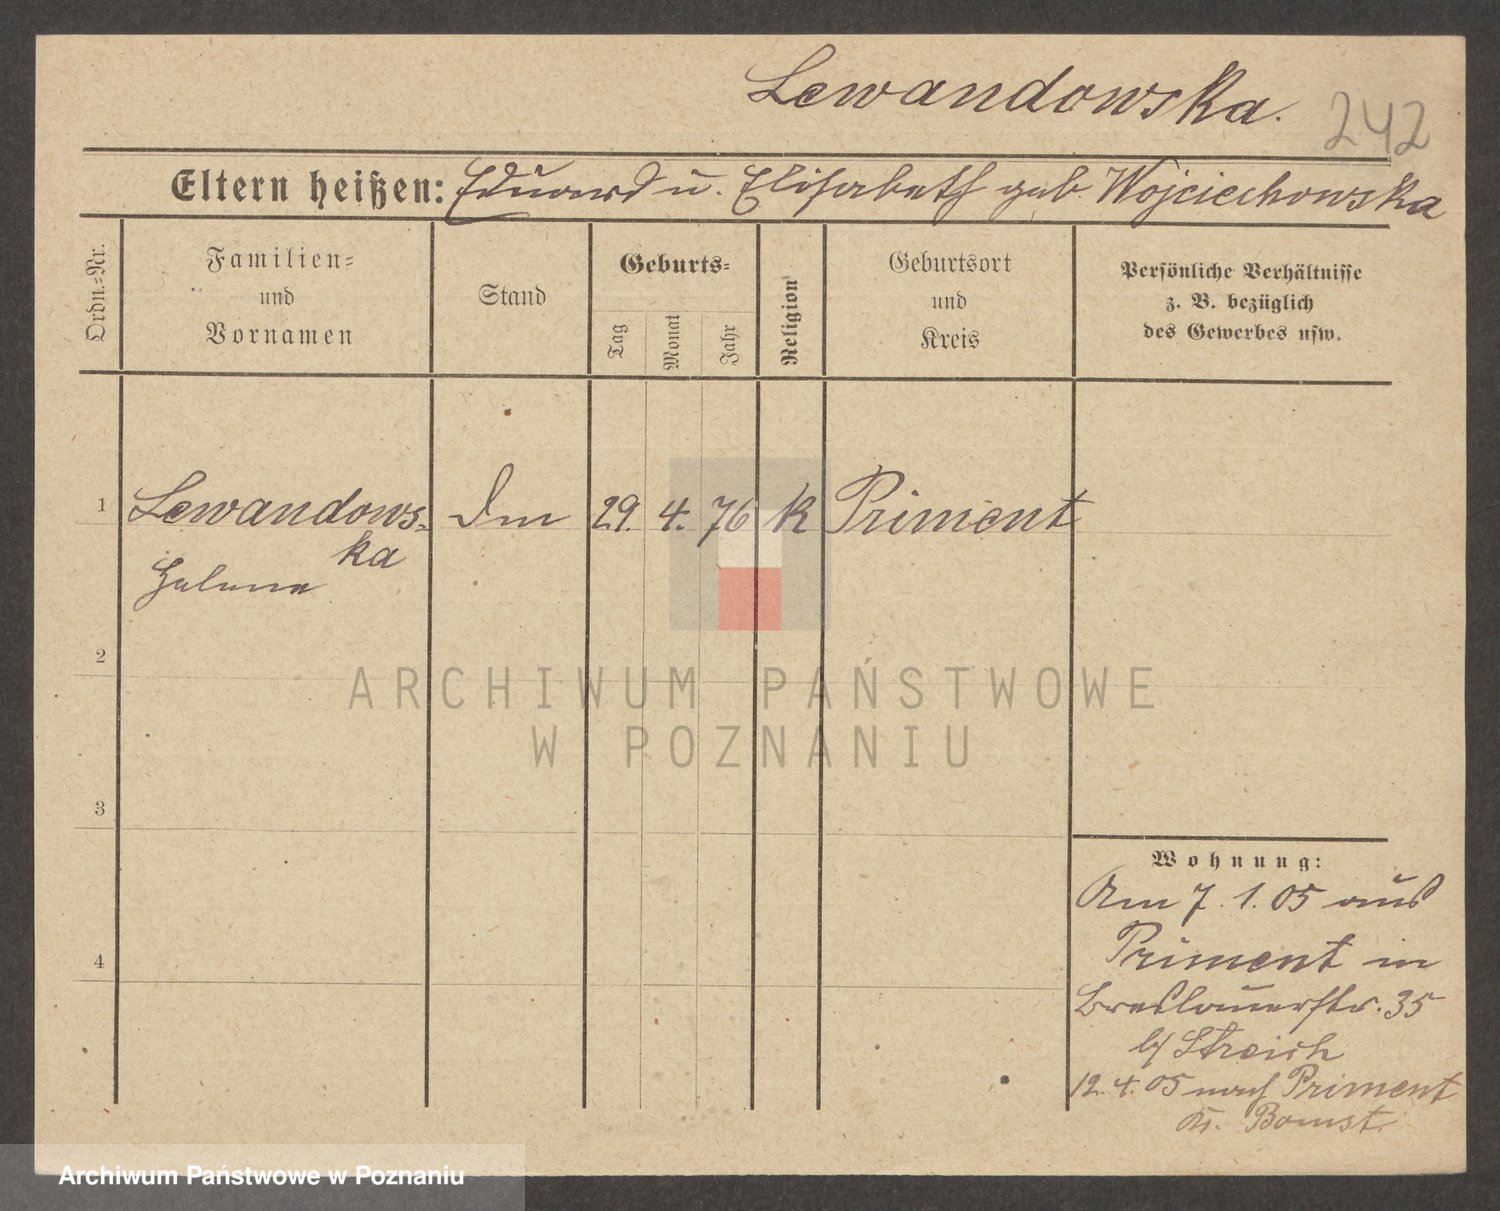 Lewandowska. 242
Eltern heißen: Eduard u. Elisabeth geb. Wojciechowska
Ordn.=Nr.
Familien=
und
Vornamen
Stand
Geburts=
Tag
Monat
Jahr
Religion
Geburtsort
und
Kreis
Persönliche Verhältnisse
z. B. bezüglich
des Gewerbes usw.
1 Lewandows- 29. 4. 76 k Priment
ka
Helene
2
3
4
Wohnung:
Am 7. 1. 05 aus
Priment in
Breslauerstr. 35
b/ Streich
12. 4. 05 nach Priment
Kr. Bomst.
ARCHIWUM PAŃSTWOWE
W POZNANIU
Archiwum Państwowe w Poznaniu